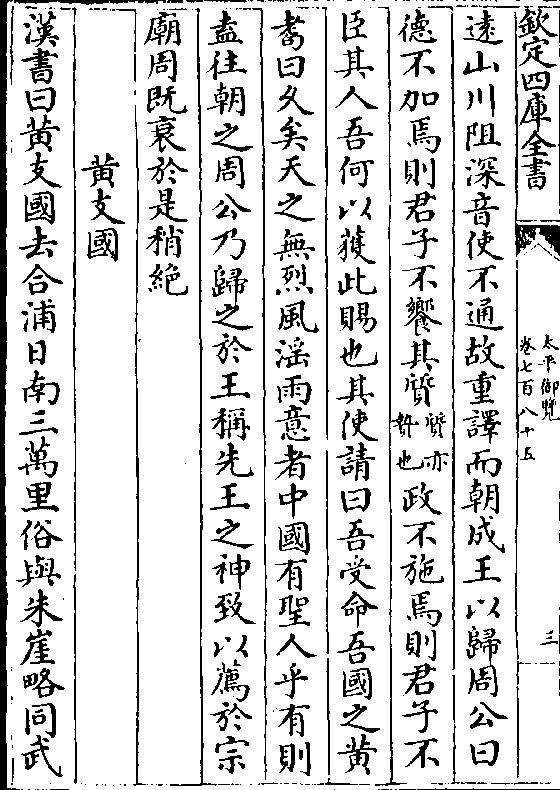 欽定四庫全書
太平御覽
卷七百八十五
三
遠山川阻深音使不通故重譯而朝成王以歸周公曰
德不加焉則君子不饗其質質亦贄也政不施焉則君子不
臣其人吾何以獲此賜也其使請曰吾受命吾國之黄
耇曰久矣天之無烈風滛雨意者中國有聖人乎有則
盍往朝之周公乃歸之於王稱先王之神致以薦於宗
廟周既衰於是稍絶
黄支國
漢書曰黄支國去合浦日南三萬里俗與朱崖略同武